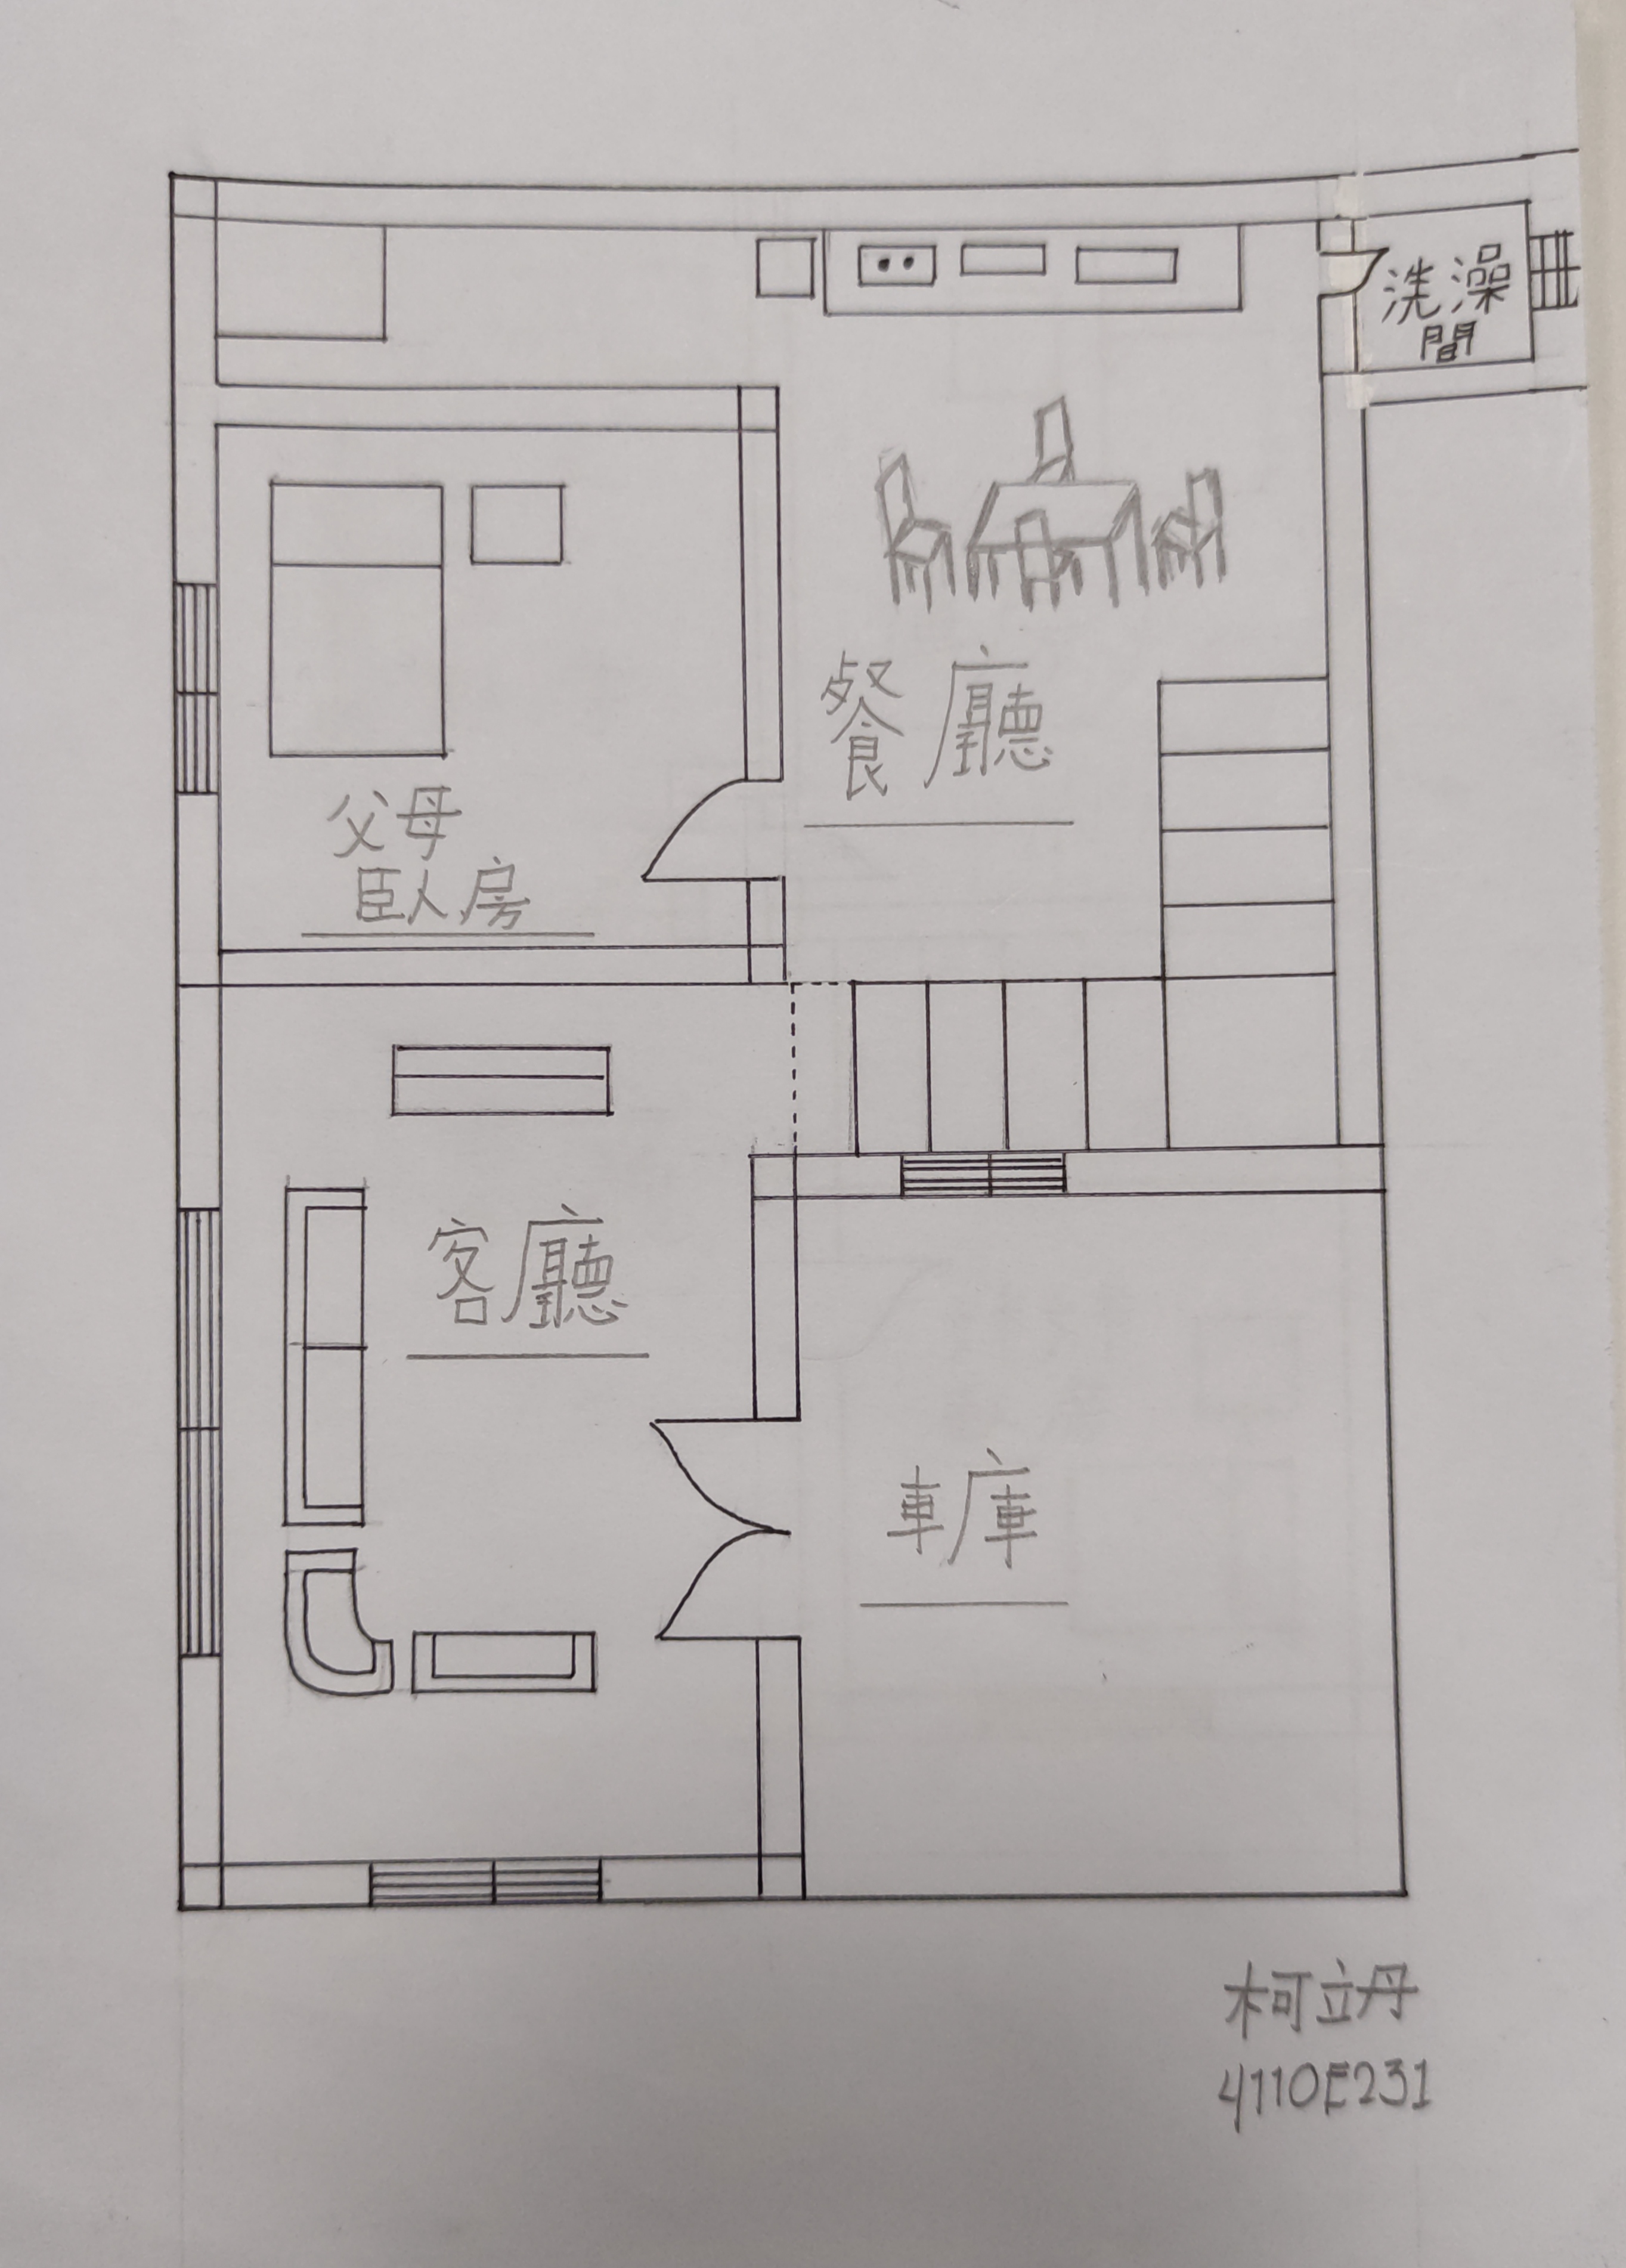 洗澡
間
餐廳
父母
臥房
客廳
車庫
柯立丹
4110E231